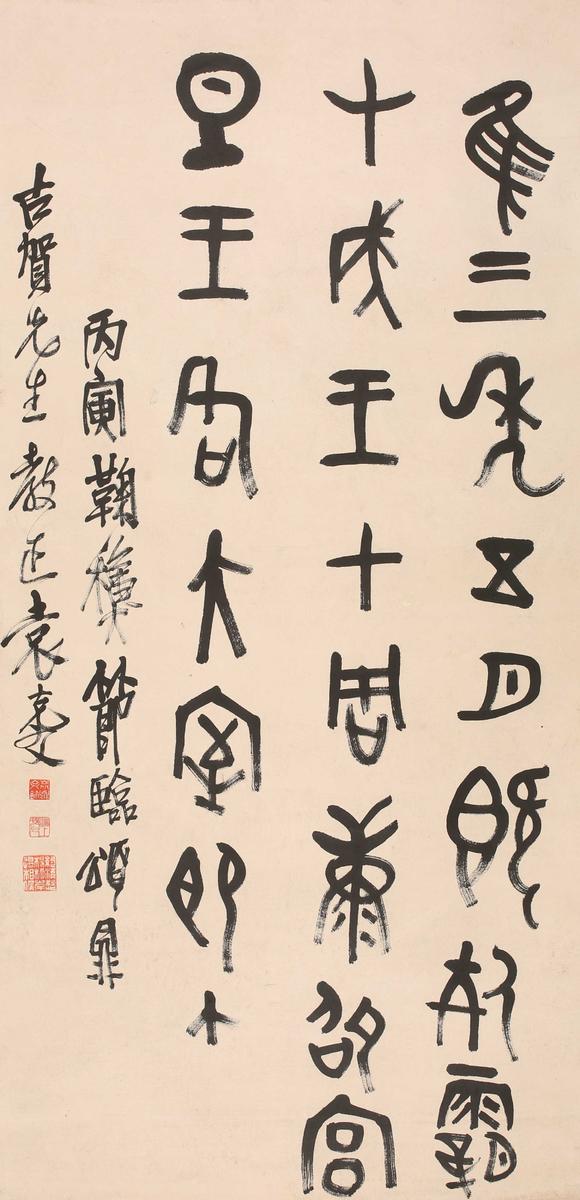 隹三年五月既死霸
甲戌王才周康卲宮
旦王各大室即立
丙寅鞠節臨頌鼎
古賀先生教正袁克文